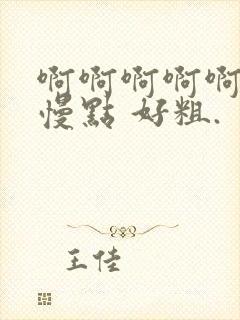 啊啊啊啊啊
慢點 好粗.
王佳